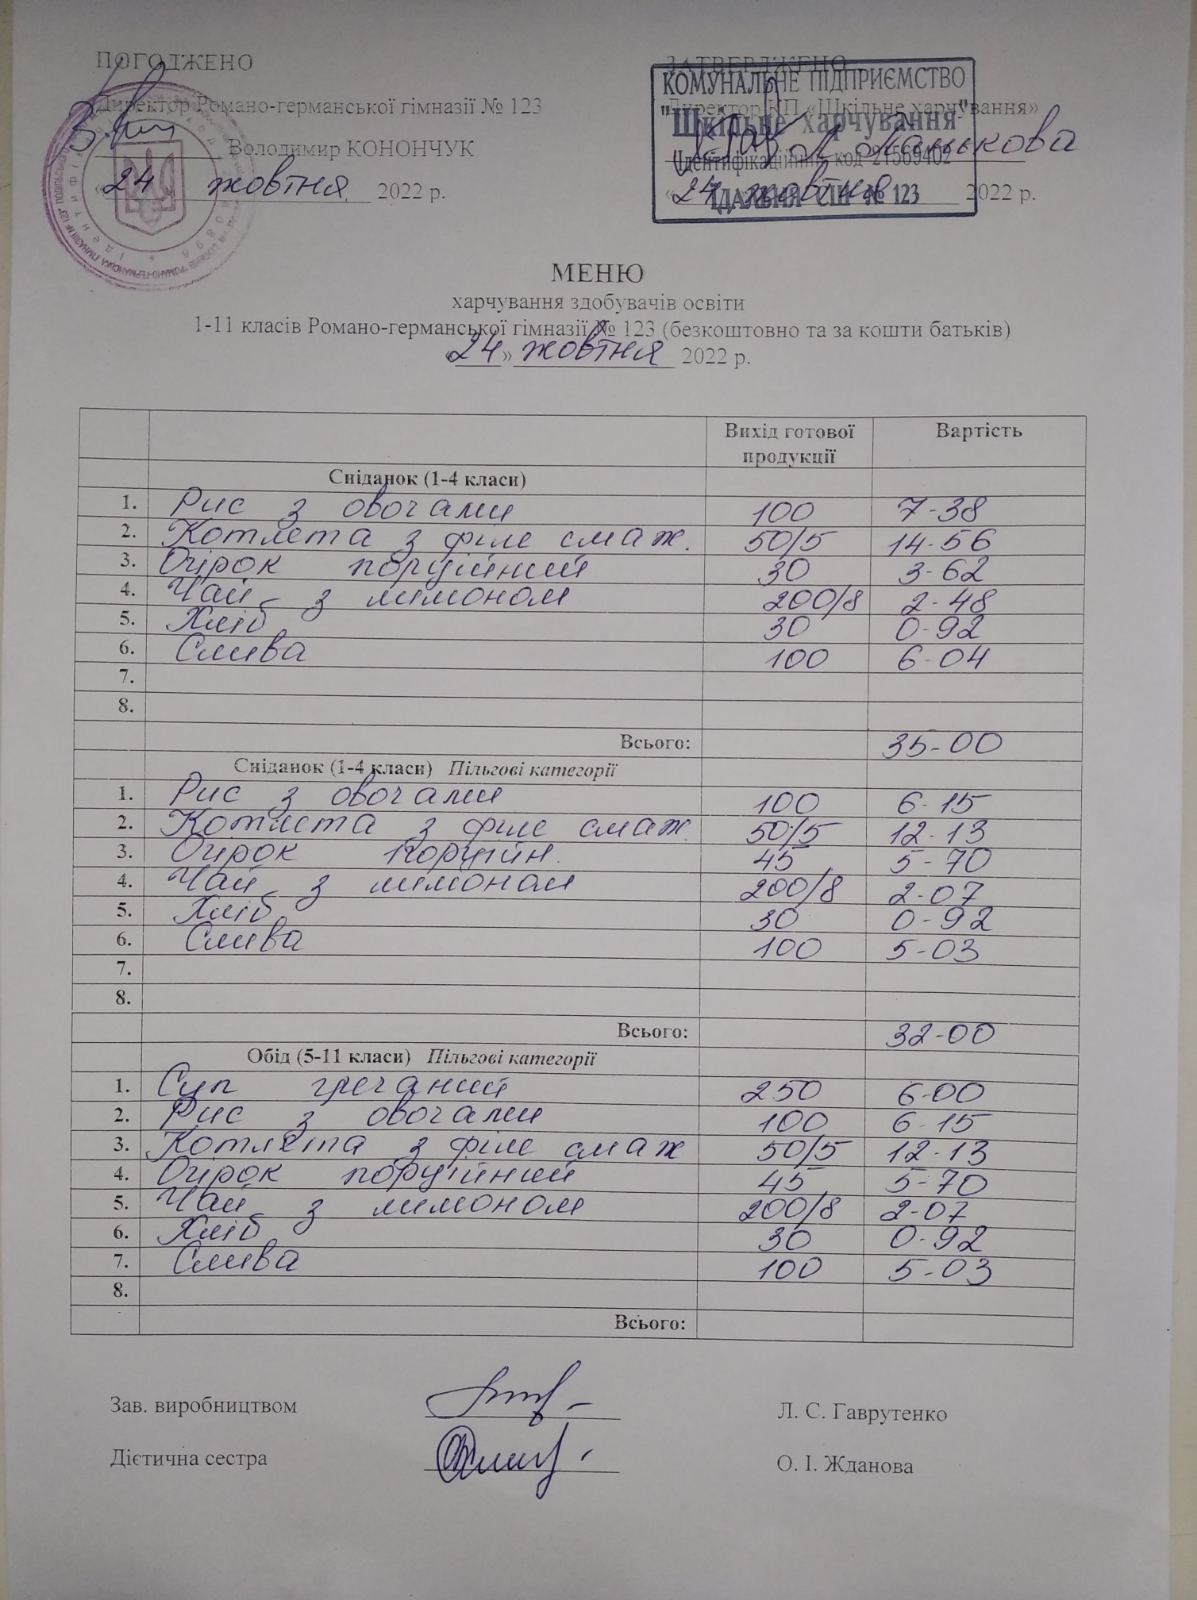 ПОГОДЖЕНО
Директор Романо-германської гімназії № 123
Володимир КОНОНЧУК
«24 жовтня 2022 р.
ЗАТВЕРДЖЕНО
КОМУНАЛЬНЕ ПІДПРИЄМСТВО
Директор КП «Шкільне харчування»
"Шкільне харчування"
Ідентифікаційний код 21569402
«24 жовтня 2022 р.
ЇДАЛЬНЯ СШ № 123
МЕНЮ
харчування здобувачів освіти
1-11 класів Романо-германської гімназії № 123 (безкоштовно та за кошти батьків)
«24» жовтня 2022 р.
Вихід готової продукції Вартість
Сніданок (1-4 класи)
1. Рис з овочами 100 7-38
2. Котлета з філе смаж. 50/5 14-56
3. Огірок порційний 30 3-62
4. Чай з лимоном 200/8 2-48
5. Хліб 30 0-92
6. Слива 100 6-04
7.
8.
Всього: 35-00
Сніданок (1-4 класи) Пільгові категорії
1. Рис з овочами 100 6-15
2. Котлета з філе смаж. 50/5 12-13
3. Огірок порційн. 45 5-70
4. Чай з лимоном 200/8 2-07
5. Хліб 30 0-92
6. Слива 100 5-03
7.
8.
Всього: 32-00
Обід (5-11 класи) Пільгові категорії
1. Суп гречаний 250 6-00
2. Рис з овочами 100 6-15
3. Котлета з філе смаж 50/5 12-13
4. Огірок порційний 45 5-70
5. Чай з лимоном 200/8 2-07
6. Хліб 30 0-92
7. Слива 100 5-03
8.
Всього:
Зав. виробництвом Л. С. Гаврутенко
Дієтична сестра О. І. Жданова